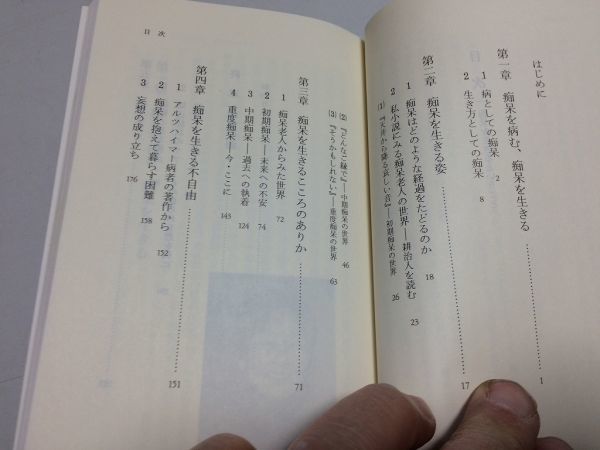 はじめに
第一章 痴呆を病む、痴呆を生きる……1
1 病としての痴呆 2
2 生き方としての痴呆 8
第二章 痴呆を生きる姿……17
1 痴呆はどのような経過をたどるのか 18
2 私小説にみる痴呆老人の世界――耕治人を読む 23
(1) 『天井から降る哀しい音』――初期痴呆の世界 26
目次
(2) 『どんなご縁で』――中期痴呆の世界 46
(3) 『そうかもしれない』――重度痴呆の世界 63
第三章 痴呆を生きるこころのありか……71
1 痴呆老人からみた世界 72
2 初期痴呆――未来への不安 74
3 中期痴呆――過去への執着 124
4 重度痴呆――今・ここに 143
第四章 痴呆を生きる不自由……151
1 アルツハイマー病者の著作から 152
2 痴呆を抱えて暮らす困難 158
3 妄想の成り立ち 176